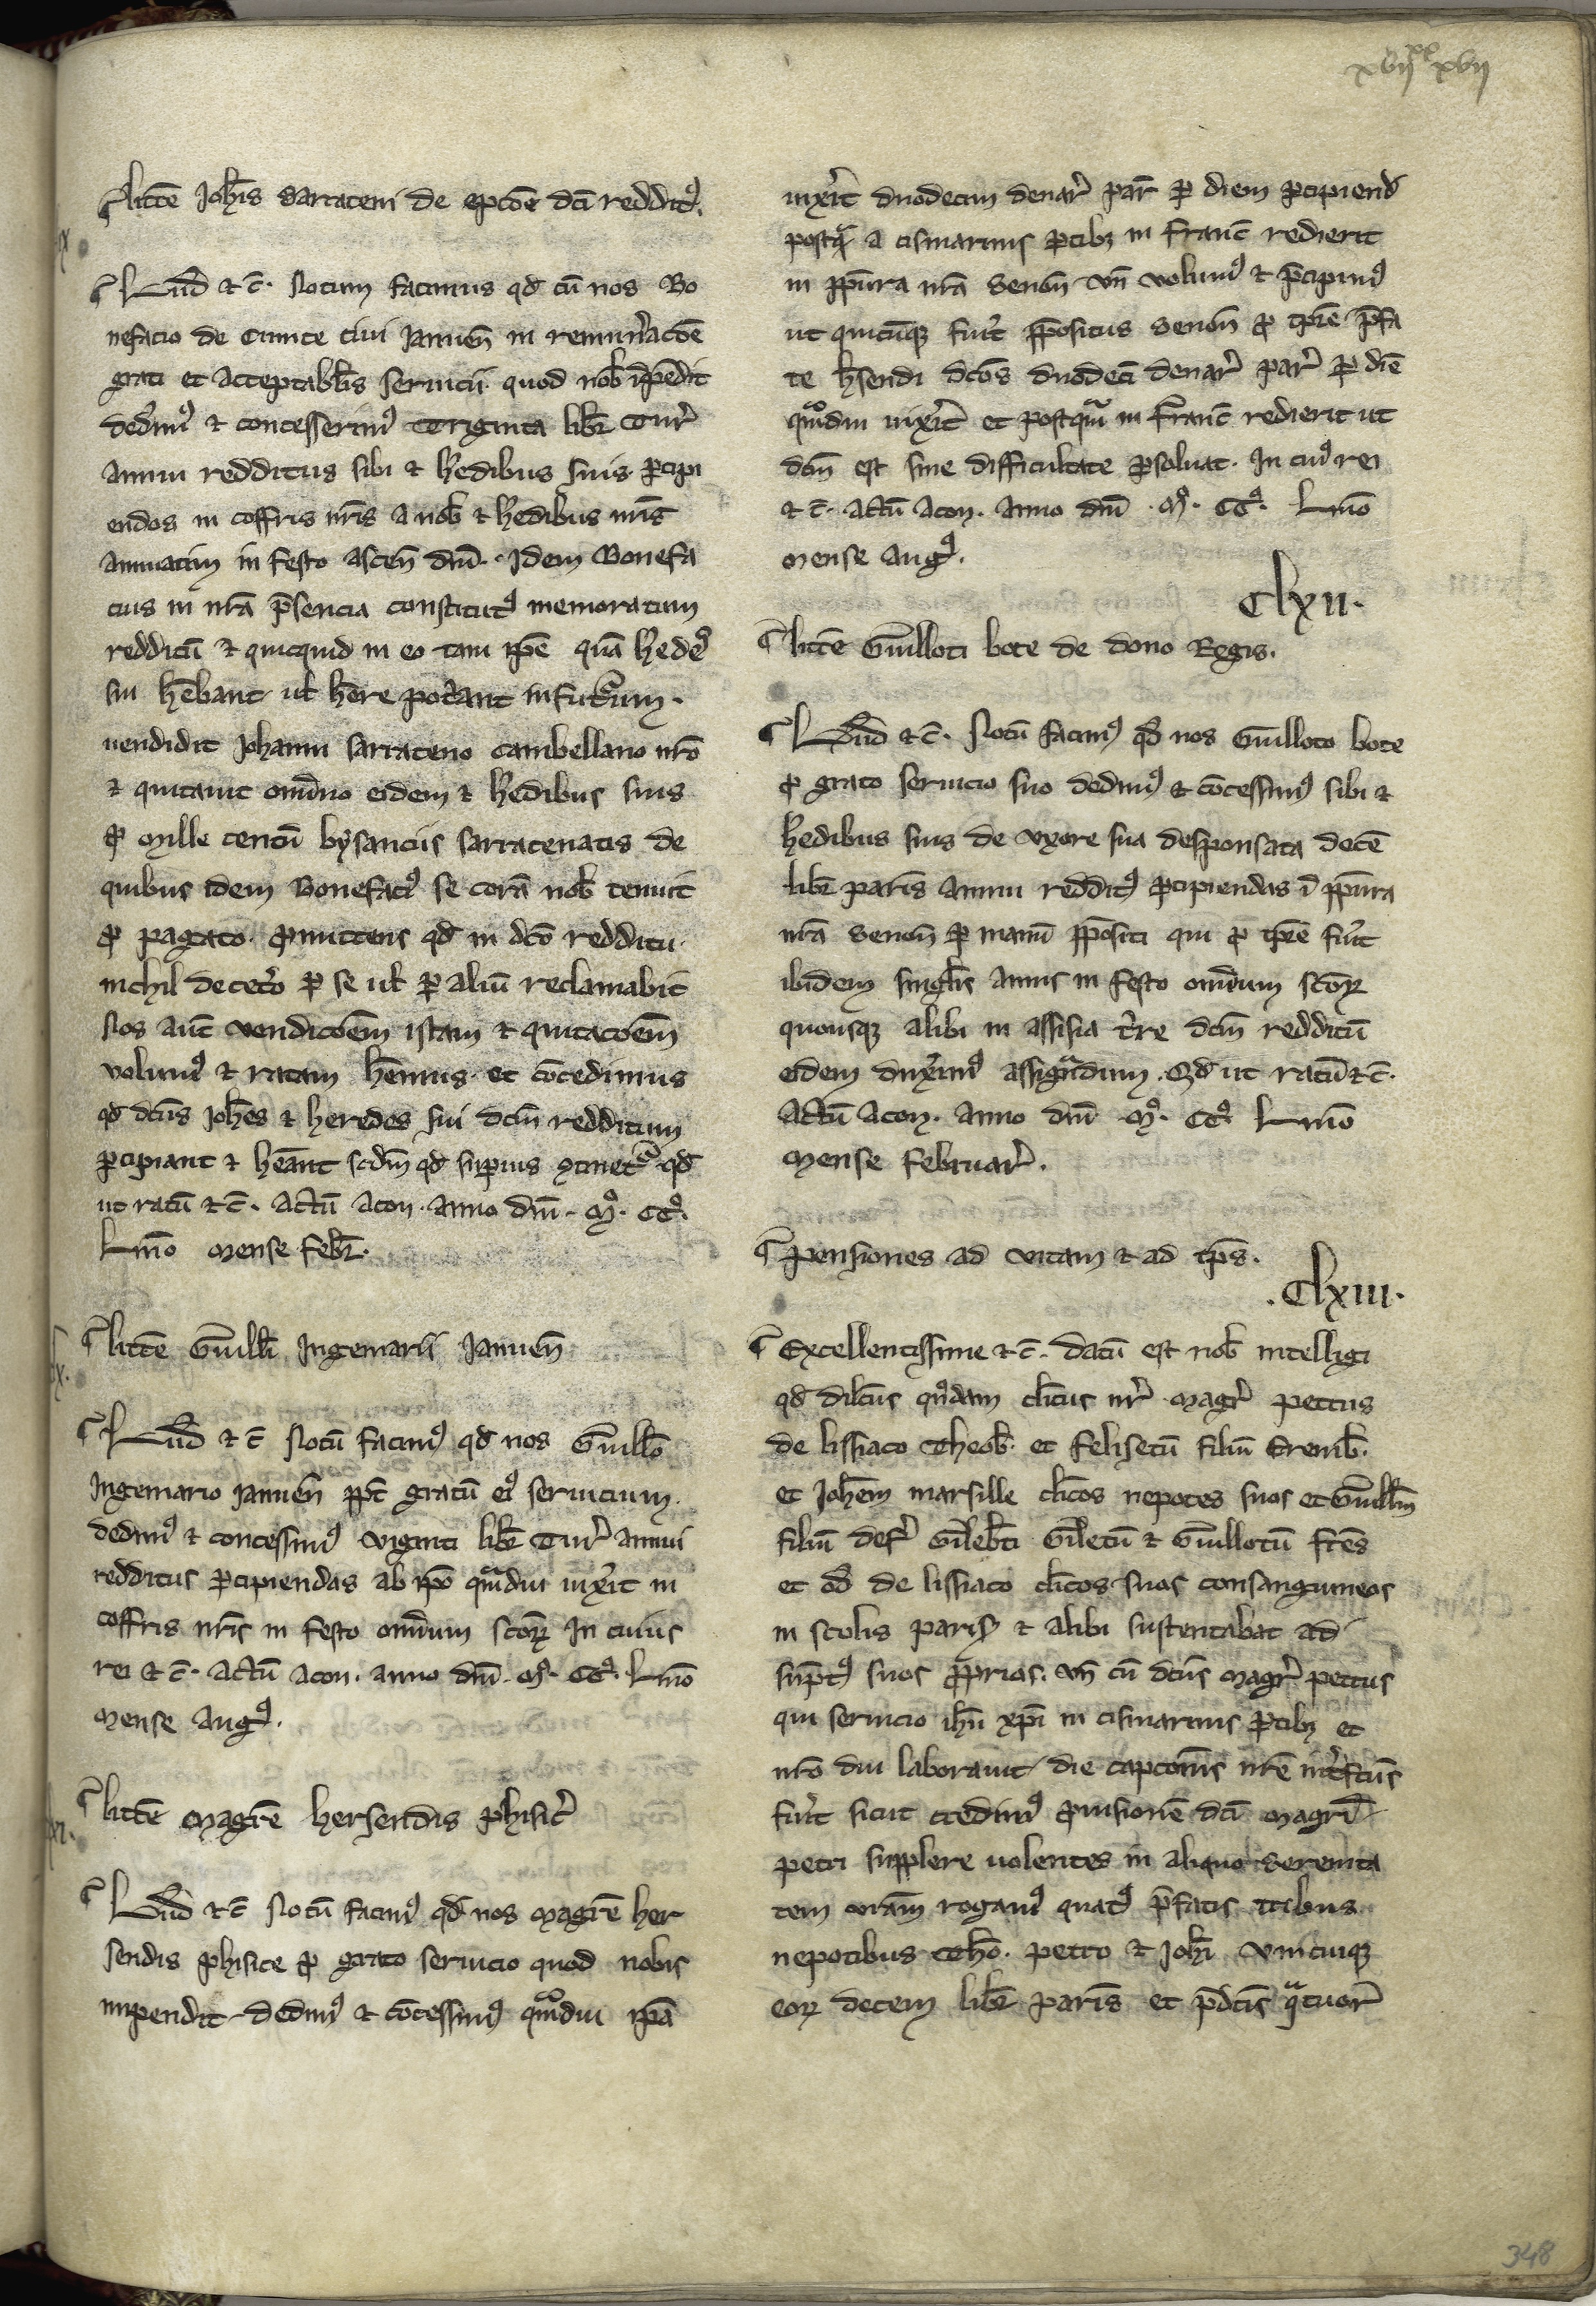 xvij xx xvij
littē Joħis sarraceni de epcōe dc̄i redditꝰ.
Lud̄ ⁊ c̄. Notum facimus qd̄ cū nos Bo
nefacio de Cunite ciui Januen̄ in remun̄acōe
grati et acceptabil̄is seruicii quod nob̄ īpēdit
dedim̄ꝰ ⁊ concesserimꝰ Triginta libr̄ Tur̄
annui redditus sibi ⁊ h̄edibus suis ꝑcipi
endos in coffris nr̄is a nob̄ ⁊ h̄edibus nr̄is
annuatim in festo ascen̄ dn̄i. Idem Bonefa
cius in nr̄a p̄sencia constitutꝰ memoratum
redditū ⁊ quicquid in eo tam ip̄e quā h̄edeꝰ
sui h̄ebant ul̄ h̄ere pot̄ant in futurum.
uendidit Johanni sarraceno cambellano nr̄o
⁊ quitauit om̄ino eidem ⁊ h̄edibus suis
ꝓ Mille centū bysanciis sarracenatis de
quibus idem Bonefaciꝰ se corā nob̄ tenuit
ꝓ pagato. ꝓmittens qd̄ in dc̄o redditu
nichil decet̄o ꝑ se ul̄ ꝑ aliū reclamabit
Nos aut̄ vendicōem istam ⁊ quitacōem
volumꝰ ⁊ ratam h̄emus et cōcedimus
qd̄ dc̄us Joh̄es ⁊ heredes sui dc̄m redditum
ꝑcipiant ⁊ h̄eant scd̄m qd̄ suꝑius ɔtinet̄ qd̄
ut ratū ⁊ c̄. Actū acon. anno dn̄i. Mº. CCº.
Lmō mense Febr̄.
littē Guill̄i Ingemarii Januen̄
Lud̄ ⁊ c̄ Notū facimꝰ qd̄ nos Guill̄o
Ingemario Januen̄ ꝓpt̄ gratū eiꝰ seruicium
dedimꝰ ⁊ concessimꝰ viginti libr̄ Tur̄ annui
redditus ꝑcipiendas ab ip̄o qm̄diu uix̄it in
coffris nr̄is in festo om̄ium scōꝝ In cuius
rei ⁊ c̄. Actū acon. anno dn̄i. Mº. CCº. Lmō
mense Augꝰ.
littē Magr̄e hersendis phisic̄
Lud̄ ⁊ c̄ Notū facimꝰ qd̄ nos magr̄e her
sendis phisice ꝓ grato seruicio quod nobis
impendit dedimꝰ ⁊ cōcessimꝰ qm̄diu ip̄a
uix̄it duodecim denar̄ par̄ ꝑ diem ꝑcipiend̄
postq̄ a cismarinis ꝑtibꝫ in Franc̄ redierit
in p̄p̄ura nr̄a Senon̄ vn̄ volumꝰ ⁊ p̄cipimꝰ
ut quicūqꝫ fuit̄ p̄positus Senon̄ ꝓ tp̄re p̄fa
te h̄sendi dc̄os duodeci denar̄ par̄ ꝑ diē
qm̄diu uix̄it et postquā in Franc̄ redierit ut
dc̄m est sine difficultate ꝑsoluat. In cuiꝰ rei
⁊ c̄. Actū Acon. anno dn̄i. Mº. CCº. Lmō
mense Augꝰ.
Clxii.
littē Guilloti bote de dono Regis.
Lud̄ ⁊ c̄. Notū facimꝰ qd̄ nos Guilloto bote
ꝓ grato seruicio suo dedimꝰ ⁊ cōcessimꝰ sibi ⁊
h̄edibus suis de vxore sua desponsata decē
libr̄ paris̄ annui redditꝰ ꝑcipiendas ī p̄p̄ura
nr̄a Senon̄ ꝑ manū p̄positi qui ꝓ tp̄re fuit̄
ibidem singl̄is annis in festo om̄ium scōꝝ
quousqꝫ alibi in assisia t̄re dc̄m redditū
eidem dux̄imꝰ assignādum. Qd̄ ut ratū ⁊ c̄.
Actū Acon. anno dn̄i Mº. CCº Lmō
mense Februar̄.
Pensiones ad vitam ⁊ ad tp̄s.
.Clxiii.
Excellentissime ⁊ c̄. datū est nob̄ intelligi
qd̄ dilc̄us qn̄dam cl̄icus nr̄ magr̄ petrus
de lissiaco Theob̄. et Felisetū filiū Eremb̄.
et Joh̄em marsille cl̄icos nepotes suos et Guill̄m
filiū def̄ Gileb̄ti Giletū ⁊ Guillotū fr̄es
et od̄ de lissiaco cl̄icos suos consanguineos
in scolis paris̄ ⁊ alibi sustentabat ad
sūptꝰ suos ꝓprios. vn̄ cū dc̄us magr̄ petrus
qui seruicio ih̄u xp̄i in cismarinis ꝑtibꝫ et
nr̄o diu laborauit die capcōnis nr̄e int̄fc̄us
fuit̄ sicut credimꝰ ꝓuisionē dc̄i magr̄i
petri supplere uolentes in aliquo serenita
tem vr̄am rogamꝰ quatꝰ p̄fatis tribus
nepotibus Theō. petro ⁊ Joh̄i vnicuiqꝫ
eoꝝ decem libr̄ paris̄ et p̄dc̄is qᵃtuor
348